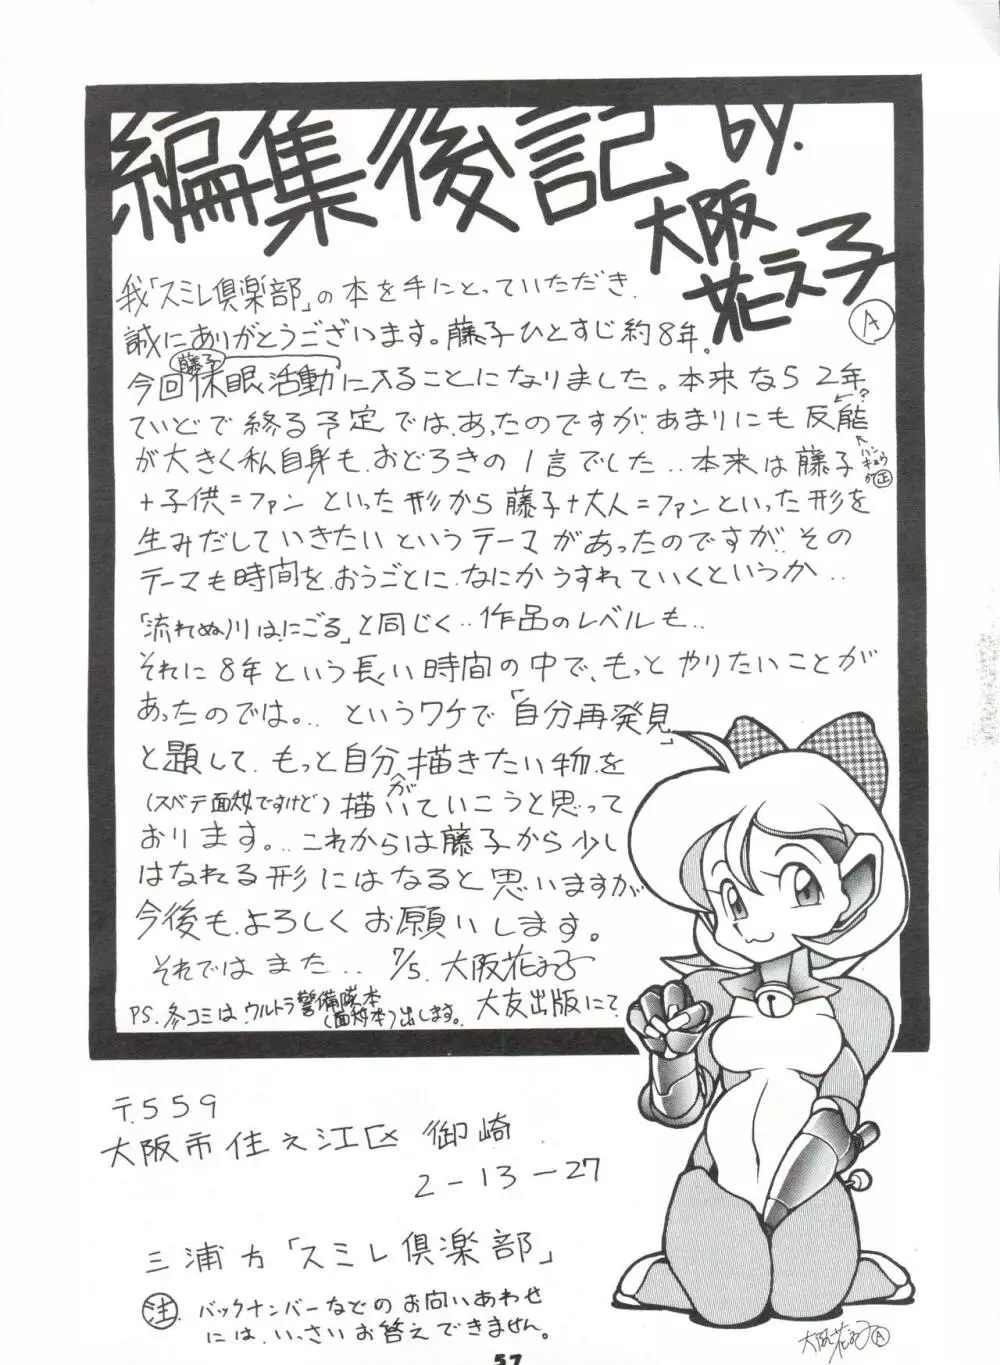 編集後記 by.
大阪
花え子
A
我「スミレ倶楽部」の本を手にとっていただき.
誠にありがとうございます。藤子ひとすじ約8年.
藤子
今回休眠活動に入ることになりました。本来なら2年
ていどで終る予定では、あったのですが、あまりにも反能
←?
ハンキョウが正
が大きく私自身も、おどろきの1言でした..本来は藤子
+子供=ファン といった形から藤子+大人=ファンといった形を
生みだしていきたいというテーマがあったのですが、その
テーマも時間を、おうごとに、なにかうすれていくというか..
「流れぬ川は、にごる」と同じく..作品のレベルも..
それに8年という長い時間の中で、もっとやりたいことが
あったのでは。.. というワケで「自分再発見」
と題して、もっと自分が描きたい物を
(スベテ面妙ですけど)描いていこうと思って
おります。..これからは藤子から少し
はなれる形にはなると思いますが
今後も、よろしくお願いします。
それではまた.. 7/5. 大阪花え子
大友出版にて
PS.冬コミは、ウルトラ警備隊本
(面妙本)出します。
〒.559
大阪市住之江区 御崎
2-13-27
三浦方「スミレ倶楽部」
注. バックナンバーなどのお問いあわせ
には、いっさいお答えできません。
大阪花え子 A
57